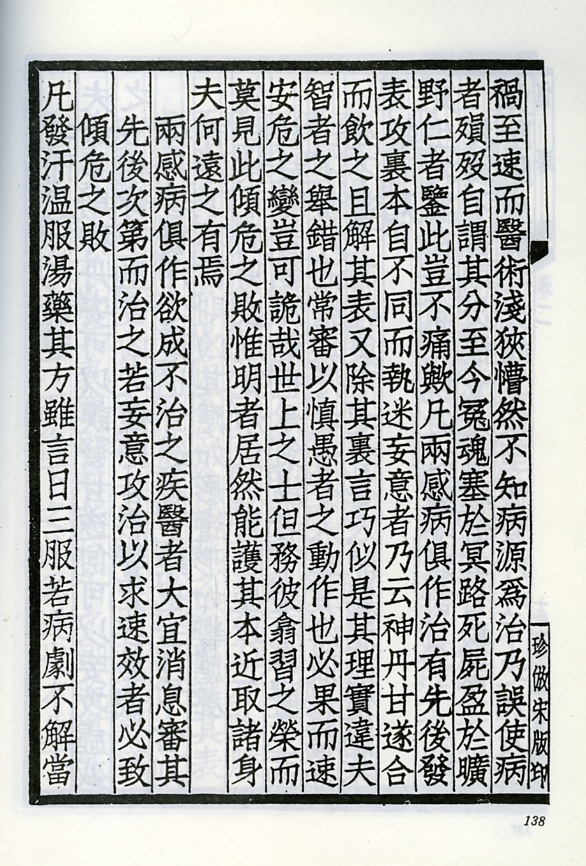 禍至速而醫術淺狹懵然不知病源爲治乃誤使病
者殞歿自謂其分至今冤魂塞於冥路死屍盈於曠
野仁者鑒此豈不痛歟凡兩感病俱作治有先後發
表攻裏本自不同而執迷妄意者乃云神丹甘遂合
而飲之且解其表又除其裏言巧似是其理實違夫
智者之舉錯也常審以慎愚者之動作也必果而速
安危之變豈可詭哉世上之士但務彼翕習之榮而
莫見此傾危之敗惟明者居然能護其本近取諸身
夫何遠之有焉
兩感病俱作欲成不治之疾醫者大宜消息審其
先後次第而治之若妄意攻治以求速效者必致
傾危之敗
凡發汗温服湯藥其方雖言日三服若病劇不解當
珍倣宋版印
138